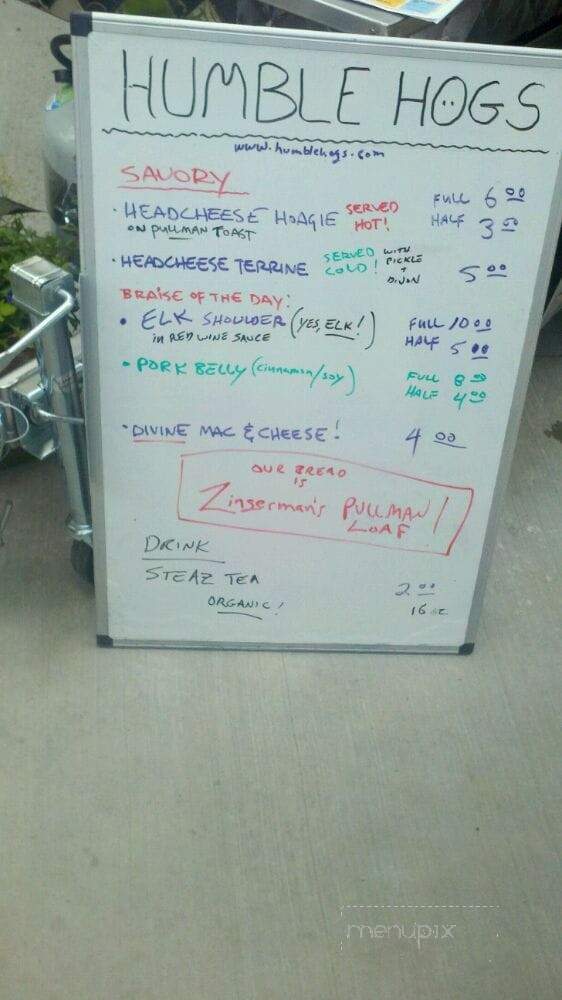 HUMBLE HOGS
www.humblehogs.com
SAVORY
· HEADCHEESE HOAGIE SERVED HOT! FULL 6 00
ON PULLMAN TOAST HALF 3 00
· HEADCHEESE TERRINE SERVED COLD! WITH PICKLE + DIJON 5 00
BRAISE OF THE DAY:
· ELK SHOULDER (YES, ELK!) FULL 10 00
IN RED WINE SAUCE HALF 5 00
· PORK BELLY (cinnamon/soy) FULL 8 00
HALF 4 00
· DIVINE MAC & CHEESE! 4 00
OUR BREAD
IS
Zingerman's PULLMAN LOAF!
DRINK
STEAZ TEA 2 00
ORGANIC! 16 oz
menupix